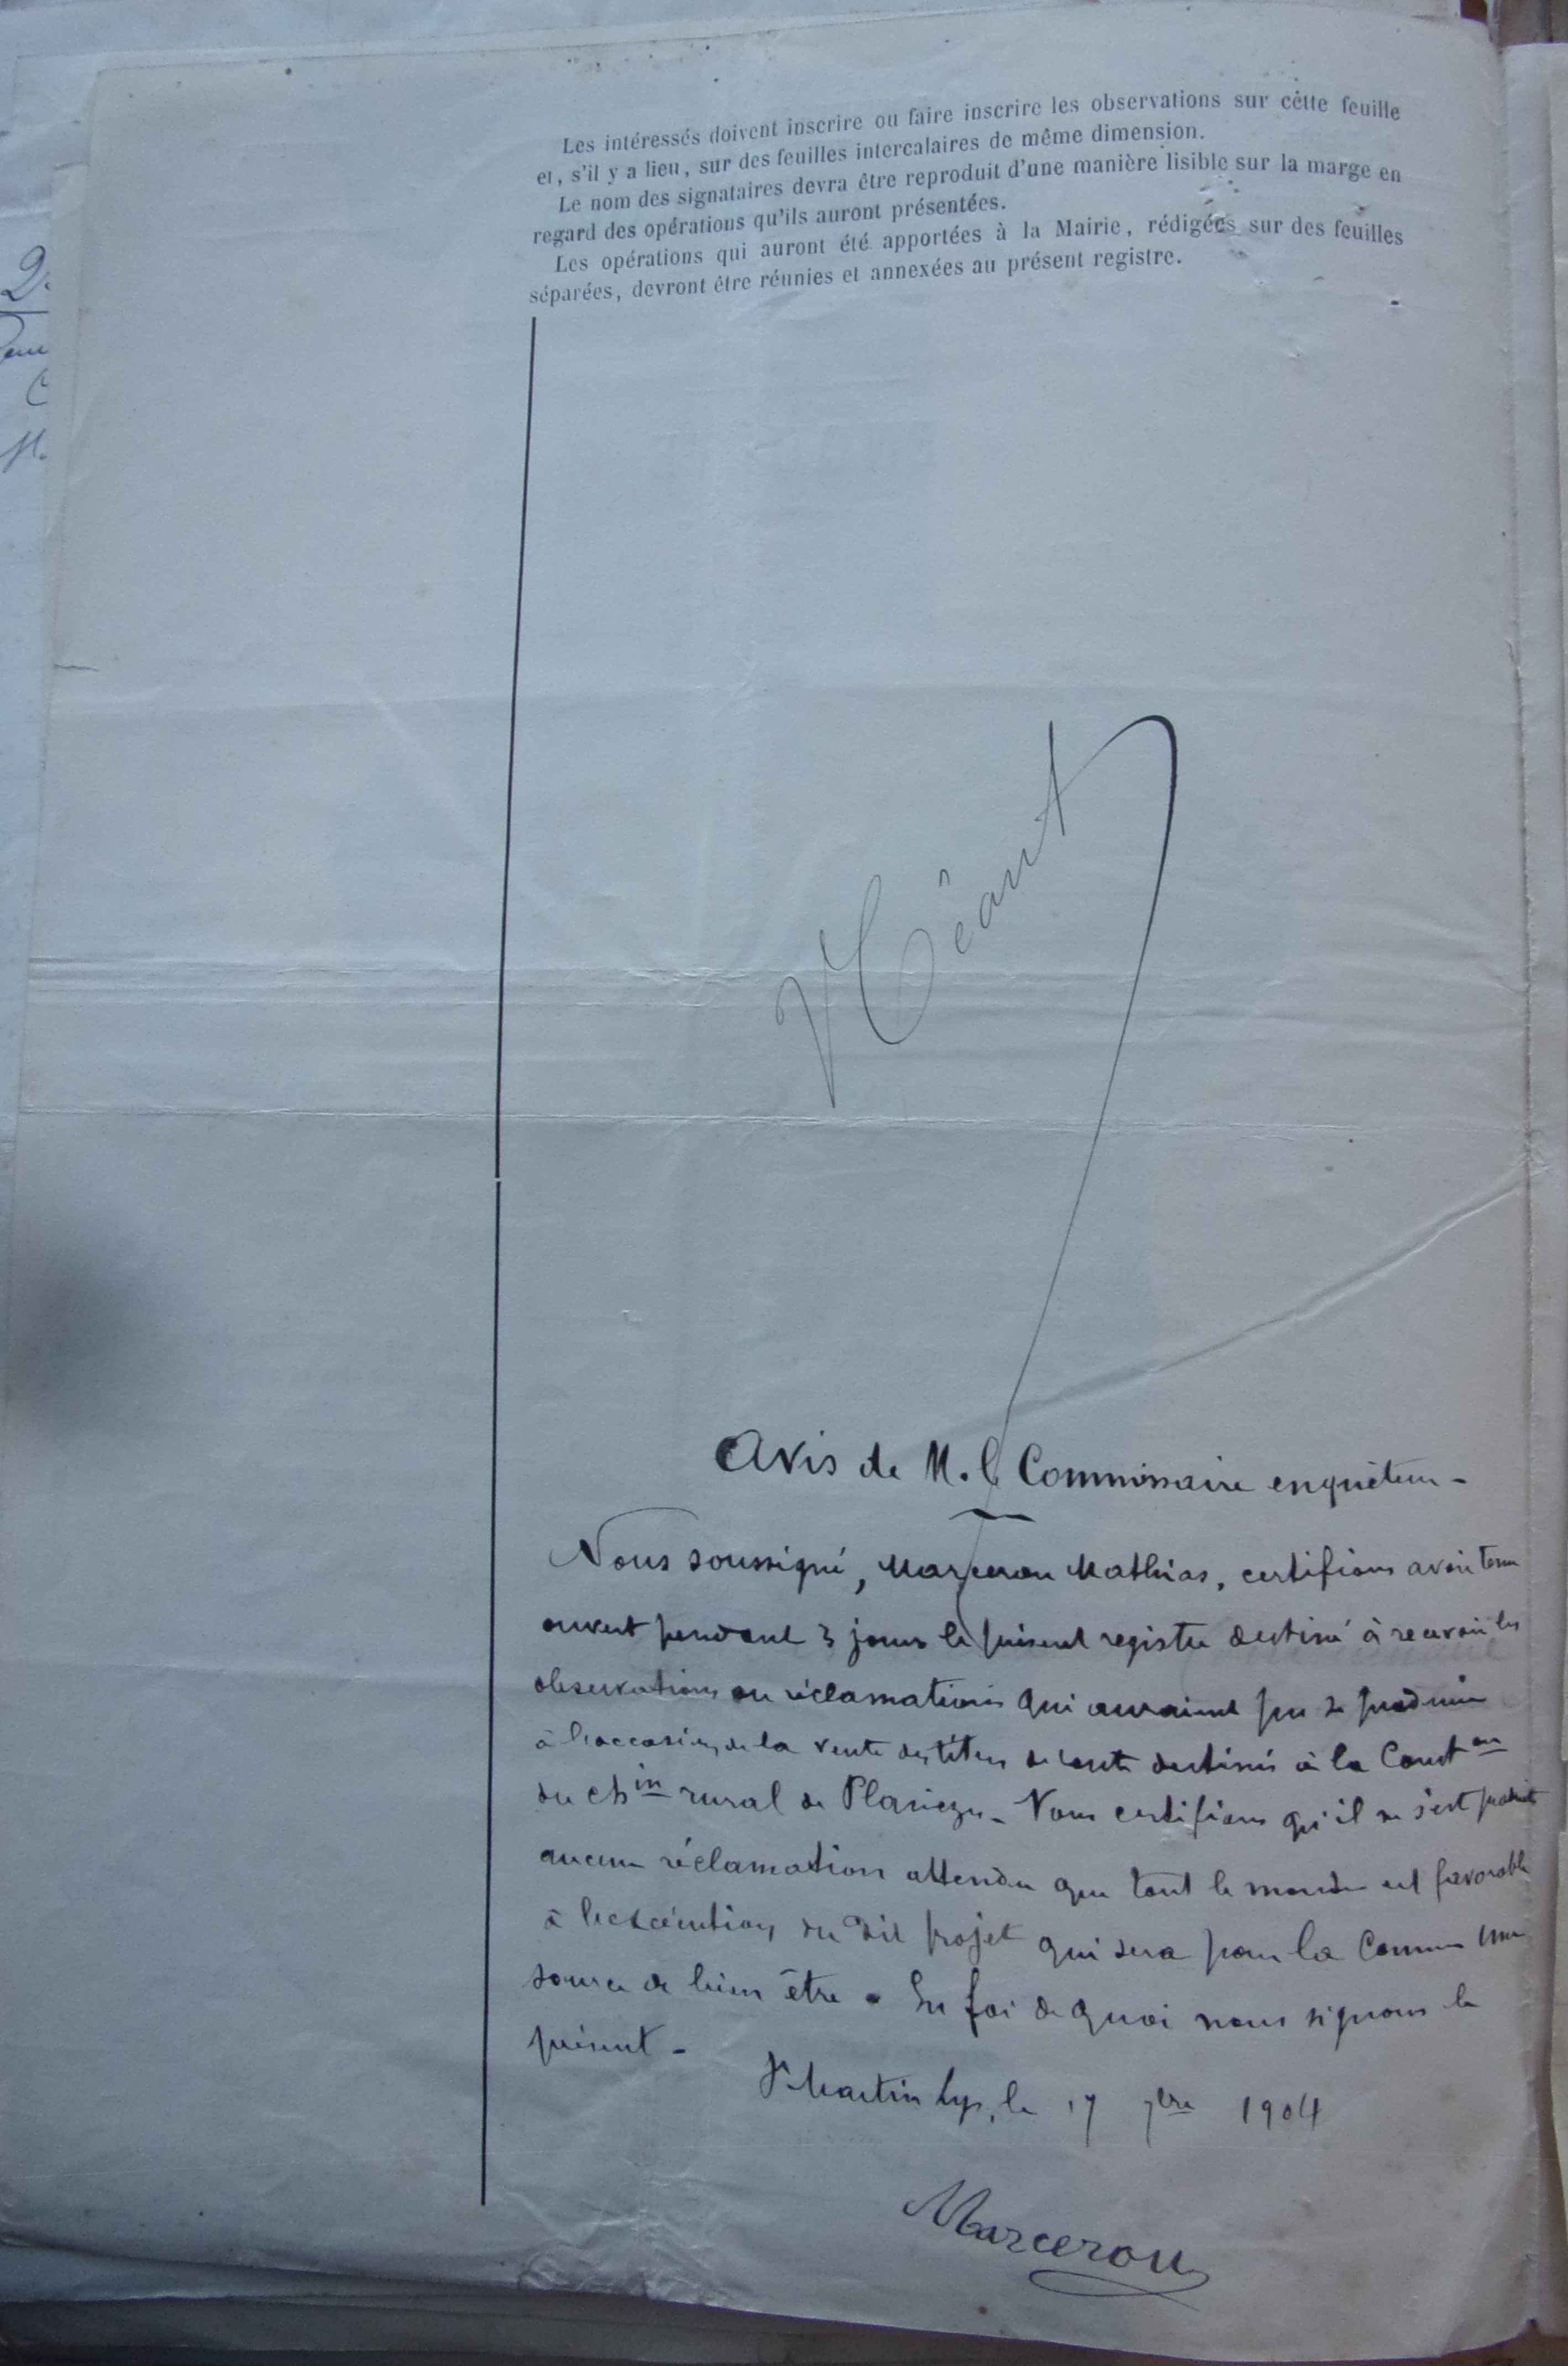 Les intéressés doivent inscrire ou faire inscrire les observations sur cette feuille
et, s'il y a lieu, sur des feuilles intercalaires de même dimension.
Le nom des signataires devra être reproduit d'une manière lisible sur la marge en
regard des opérations qu'ils auront présentées.
Les opérations qui auront été apportées à la Mairie, rédigées sur des feuilles
séparées, devront être réunies et annexées au présent registre.
Néant
Avis de M. le Commissaire enquêteur -
Nous soussigné, Marcerou Mathias, certifions avoir tenu
ouvert pendant 3 jours le présent registre destiné à recevoir les
observations ou réclamations qui auraient pu se produire
à l'occasion de la vente des titres de rente destinés à la Const on
du ch in rural de - Nous certifions qu'il ne s'est produit
aucune réclamation attendu que tout le monde est favorable
à l'exécution du dit projet qui sera pour la Commune une
source de bien être. En foi de quoi nous signons le
présent -
St Martin Lys, le 17 7bre 1904
Marcerou